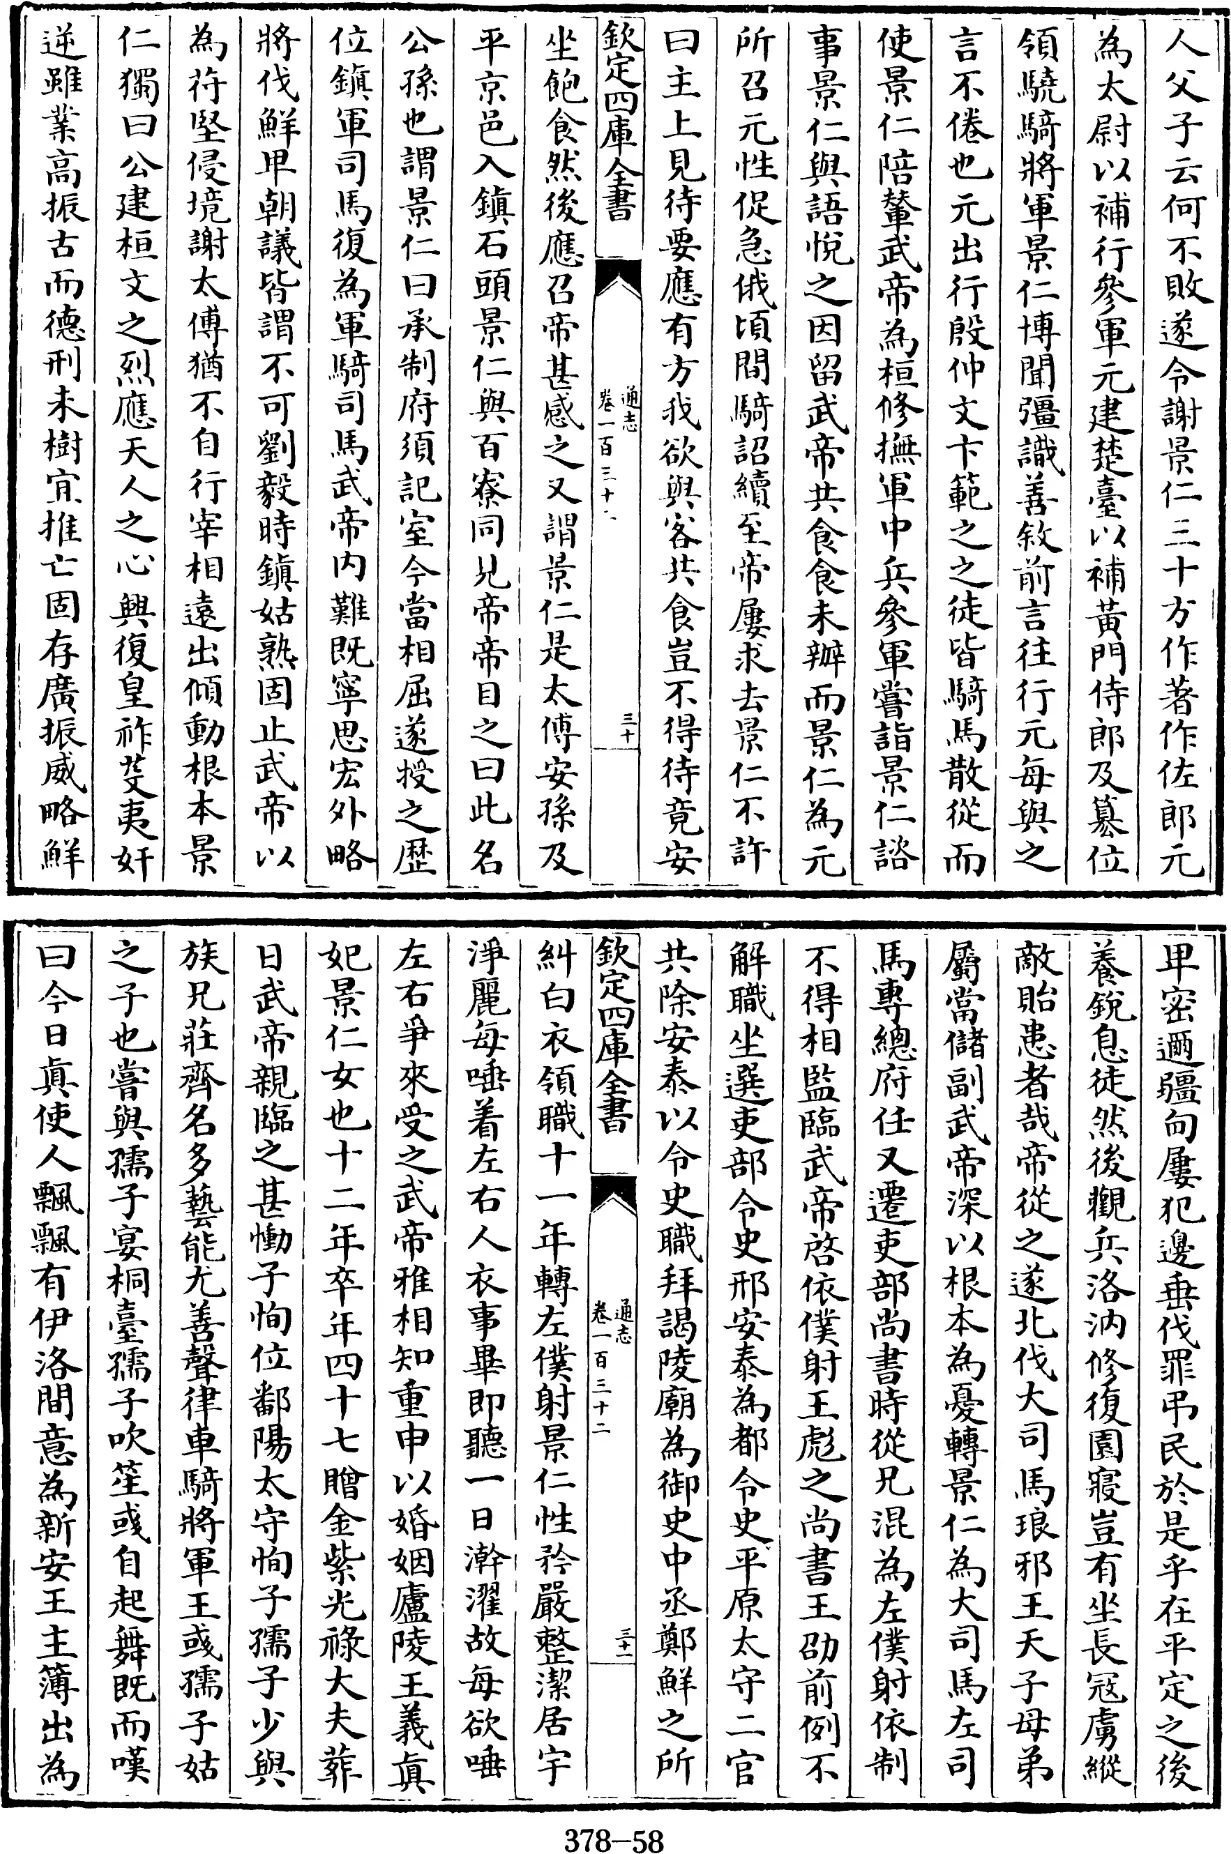 人父子云何不敗遂令謝景仁三十方作著作佐郎元
為太尉以補行參軍元建楚臺以補黃門侍郎及篡位
領驍騎將軍景仁博聞彊識善敘前言往行元每與之
言不倦也元出行殷仲文卞範之之徒皆騎馬散從而
使景仁陪輦武帝為桓修撫軍中兵參軍嘗詣景仁諮
事景仁與語悅之因留武帝共食食未辦而景仁為元
所召元性促急俄頃間騎詔續至帝屢求去景仁不許
曰主上見待要應有方我欲與客共食豈不得待竟安
欽定四庫全書
通志
卷一百三十
三十
坐飽食然後應召帝甚感之又謂景仁是太傅安孫及
平京邑入鎮石頭景仁與百寮同見帝帝目之曰此名
公孫也謂景仁曰承制府須記室今當相屈遂授之歷
位鎮軍司馬復為軍騎司馬武帝內難既寧思宏外略
將伐鮮卑朝議皆謂不可劉毅時鎮姑熟固止武帝以
為苻堅侵境謝太傅猶不自行宰相遠出傾動根本景
仁獨曰公建桓文之烈應天人之心興復皇祚芟夷奸
逆雖業高振古而德刑未樹宜推亡固存廣振威略鮮
卑密邇疆甸屢犯邊垂伐罪弔民於是乎在平定之後
養銳息徒然後觀兵洛汭修復園寢豈有坐長寇虜縱
敵貽患者哉帝從之遂北伐大司馬琅邪王天子母弟
屬當儲副武帝深以根本為憂轉景仁為大司馬左司
馬專總府任又遷吏部尚書時從兄混為左僕射依制
不得相監臨武帝啓依僕射王彪之尚書王劭前例不
解職坐選吏部令史邢安泰為都令史平原太守二官
共除安泰以令史職拜謁陵廟為御史中丞鄭鮮之所
欽定四庫全書
通志
卷一百三十二
三十一
糾白衣領職十一年轉左僕射景仁性矜嚴整潔居宇
淨麗每唾着左右人衣事畢即聽一日澣濯故每欲唾
左右爭來受之武帝雅相知重申以婚姻廬陵王義真
妃景仁女也十二年卒年四十七贈金紫光祿大夫葬
日武帝親臨之甚慟子恂位鄱陽太守恂子孺子少與
族兄莊齊名多藝能尤善聲律車騎將軍王彧孺子姑
之子也嘗與孺子宴桐臺孺子吹笙彧自起舞既而嘆
曰今日真使人飄飄有伊洛間意為新安王主簿出為
378-58